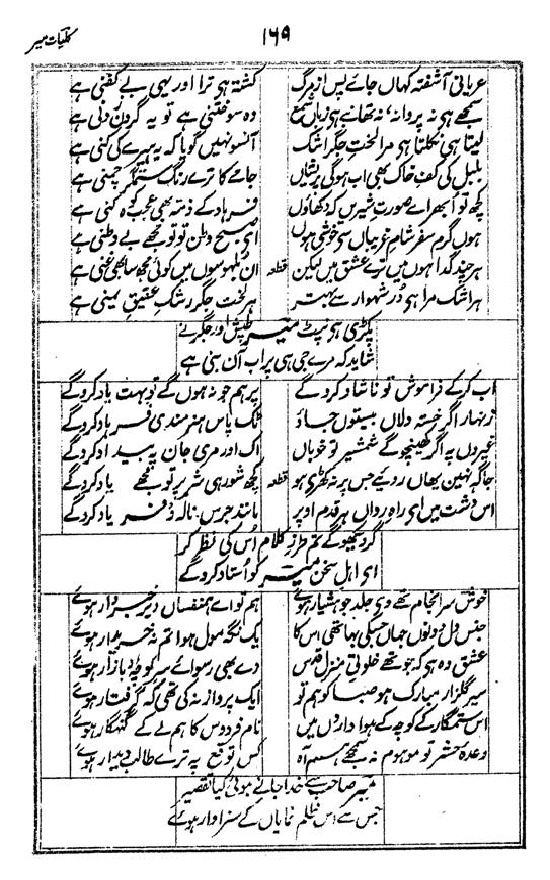 کلیات میر
۱۶۹
عریانی آشفتہ کہاں جائے پس از مرگ کشتہ ہی ترا اور یہی بے کفنی ہے
سمجھے ہی نہ پروانہ نہ تھانبے ہی زباں شمع وہ سوختنی ہے تو یہ گردن زدنی ہے
لیتا ہی نکلتا ہی مرا لخت جگر اشک آنسو نہیں گویا کہ یہ ہیرے کی کنی ہے
بلبل کی کف خاک بھی اب ہوگی پریشاں جامے کا ترے رنگ ستمگر چمنی ہے
کچھ تو ابھر اے صورت شیریں کہ دکھاؤں فرہاد کے ذمہ بھی عجب کوہ کنی ہے
ہوں گرم سفر شام غریباں سی خوشی ہوں ای صبح وطن تو تو مجھے بے وطنی ہے
ہر چند گدا ہوں میں ترے عشق میں لیکن قطعہ ان بلہوسوں میں کوئی مجھ سا بھی غنی ہے
ہر اشک مرا ہی در شہوار سے بہتر ہر لخت جگر رشک عقیق یمنی ہے
بگڑی ہی نپٹ میر طپش اور جگر نے
شاید کہ مرے جی ہی پر اب آن بنی ہے
اب کر کے فراموش تو ناشاد کرو گے پر ہم جو نہ ہوں گے تو بہت یاد کرو گے
زنہار اگر خستہ دلاں بیستوں جاؤ ٹک پاس ہنر مندی فرہاد کرو گے
غیروں پہ اگر کھینچو گے شمشیر تو خوباں اک اور مری جان پہ بیداد کرو گے
جاگہ نہیں یھاں رویئے جس پر نہ کھڑی ہو قطعہ کچھ شور ہی شر پر تو مجھے یاد کرو گے
اس دشت میں ای راہ رواں ہر قدم اوپر مانند جرس نالہ و فریاد کرو گے
گر دیکھو گے تم طرز کلام اس کی نظر کر
ای اہل سخن میر کو استاد کرو گے
خوش سر انجام تھے وی جلد جو ہشیار ہوئے ہم تو اے ہمنفساں دیر خبردار ہوئے
جنس دل دونوں جہاں جسکی بہا تھی اس کا یک نگہ مول ہوا تم نہ خریدار ہوئے
عشق وہ ہی کہ جو تھے خلوتی منزل قدس وے بھی رسوائے سر کوچہ و بازار ہوئے
سیر گلزار مبارک ہو صبا کو ہم تو ایک پرواز نہ کی تھی کہ گرفتار ہوئے
اس ستمگار کے کوچہ کے ہواداروں میں نام فردوس کا ہم لے کے گنہگار ہوئے
وعدہ حشر تو موہوم نہ سمجھے ہم آہ کس توقع پہ ترے طالب دیدار ہوئے
میر صاحب سے خدا جانے ہوئی کیا تقصیر
جس سے اس ظلم نمایاں کے سزاوار ہوئے